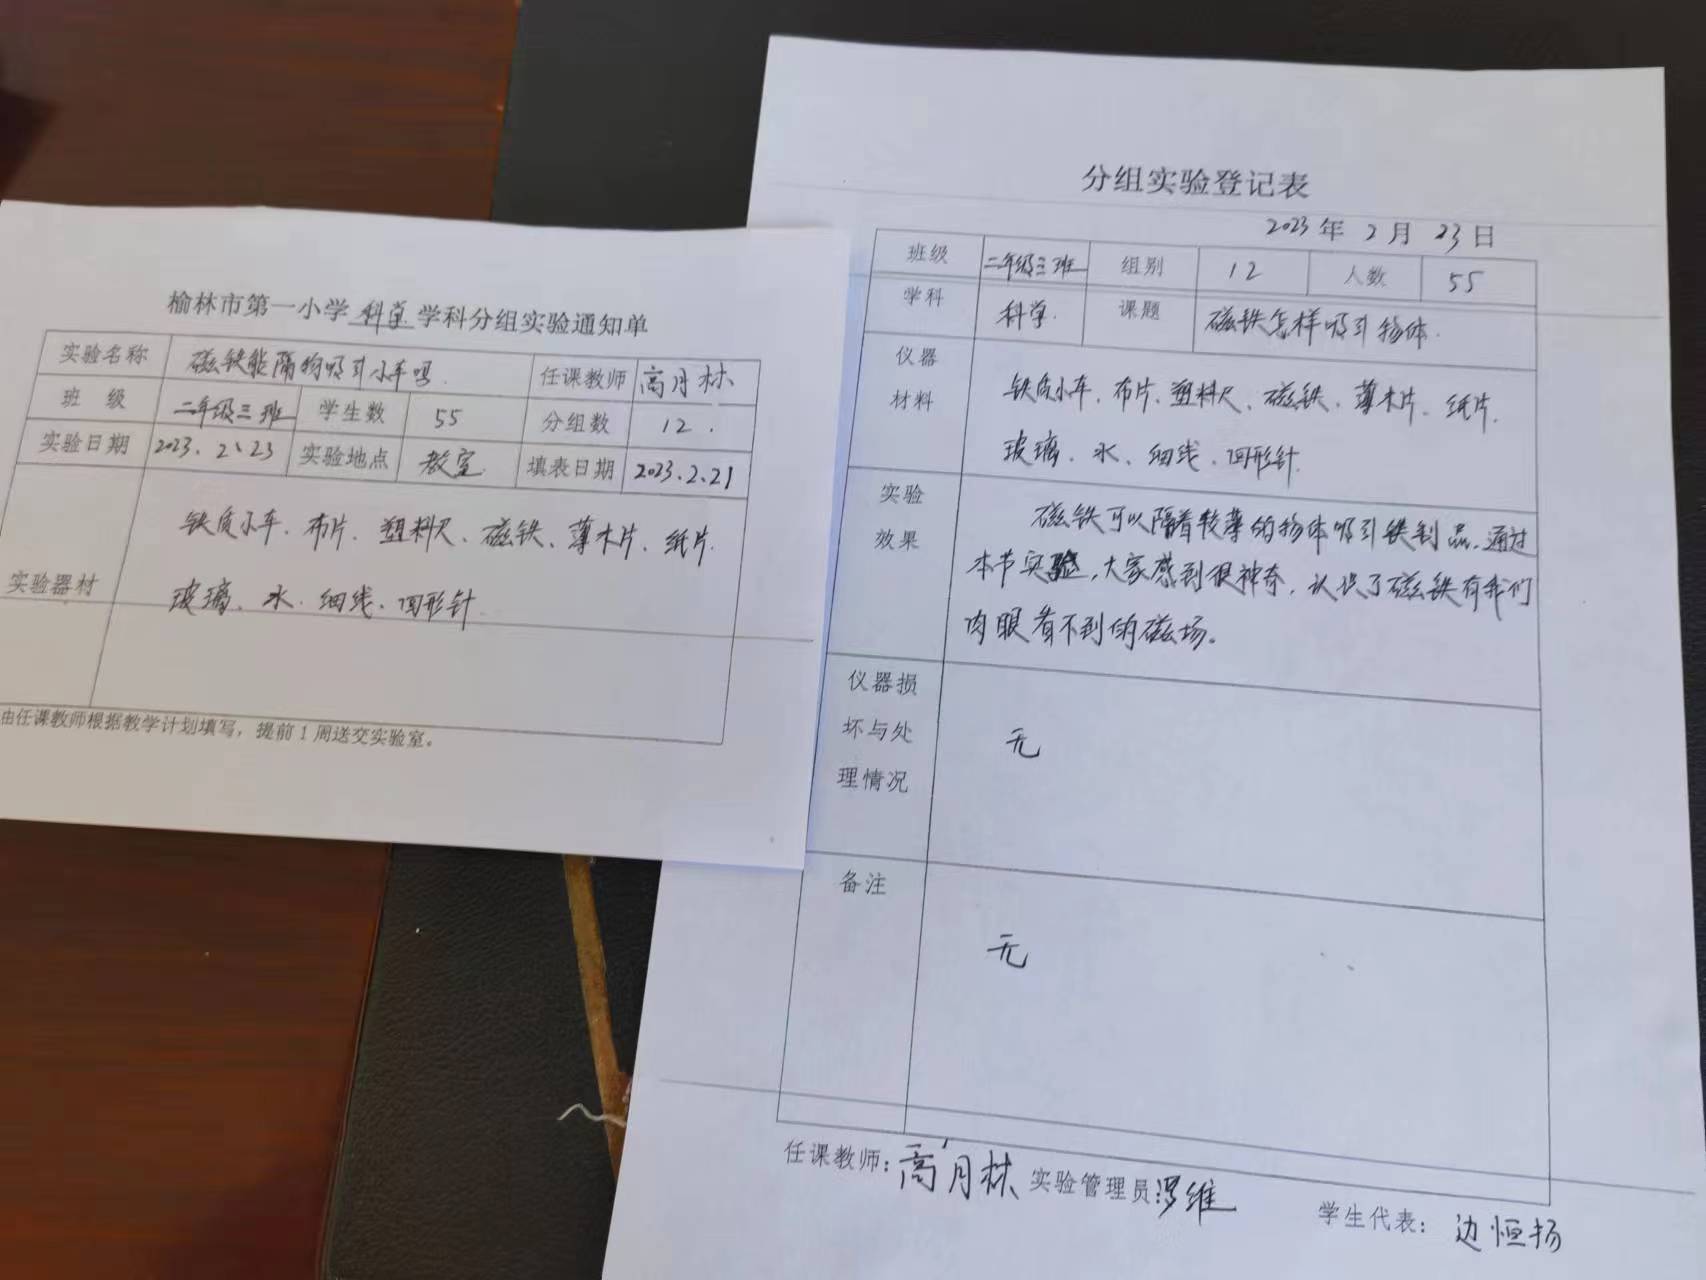 榆林市第一小学科学学科分组实验通知单
实验名称 磁铁能隔物吸引小车吗 任课教师 高月林
班级 二年级三班 学生数 55 分组数 12.
实验日期 2023.2、23 实验地点 教室 填表日期 2023.2.21
实验器材
铁质小车、布片、塑料尺、磁铁、薄木片、纸片.
玻璃、水、细线、回形针.
由任课教师根据教学计划填写，提前1周送交实验室。
分组实验登记表
2023年2月23日
班级 二年级三班 组别 12 人数 55
学科 科学. 课题 磁铁怎样吸引物体.
仪器
材料
铁质小车、布片、塑料尺、磁铁、薄木片、纸片.
玻璃、水、细线、回形针.
实验
效果
磁铁可以隔着较薄的物体吸引铁制品.通过
本节实验,大家感到很神奇,认识了磁铁有我们
肉眼看不到的磁场。
仪器损
坏与处
理情况
无
备注
无
任课教师:高月林 实验管理员: 维
学生代表: 边恒扬